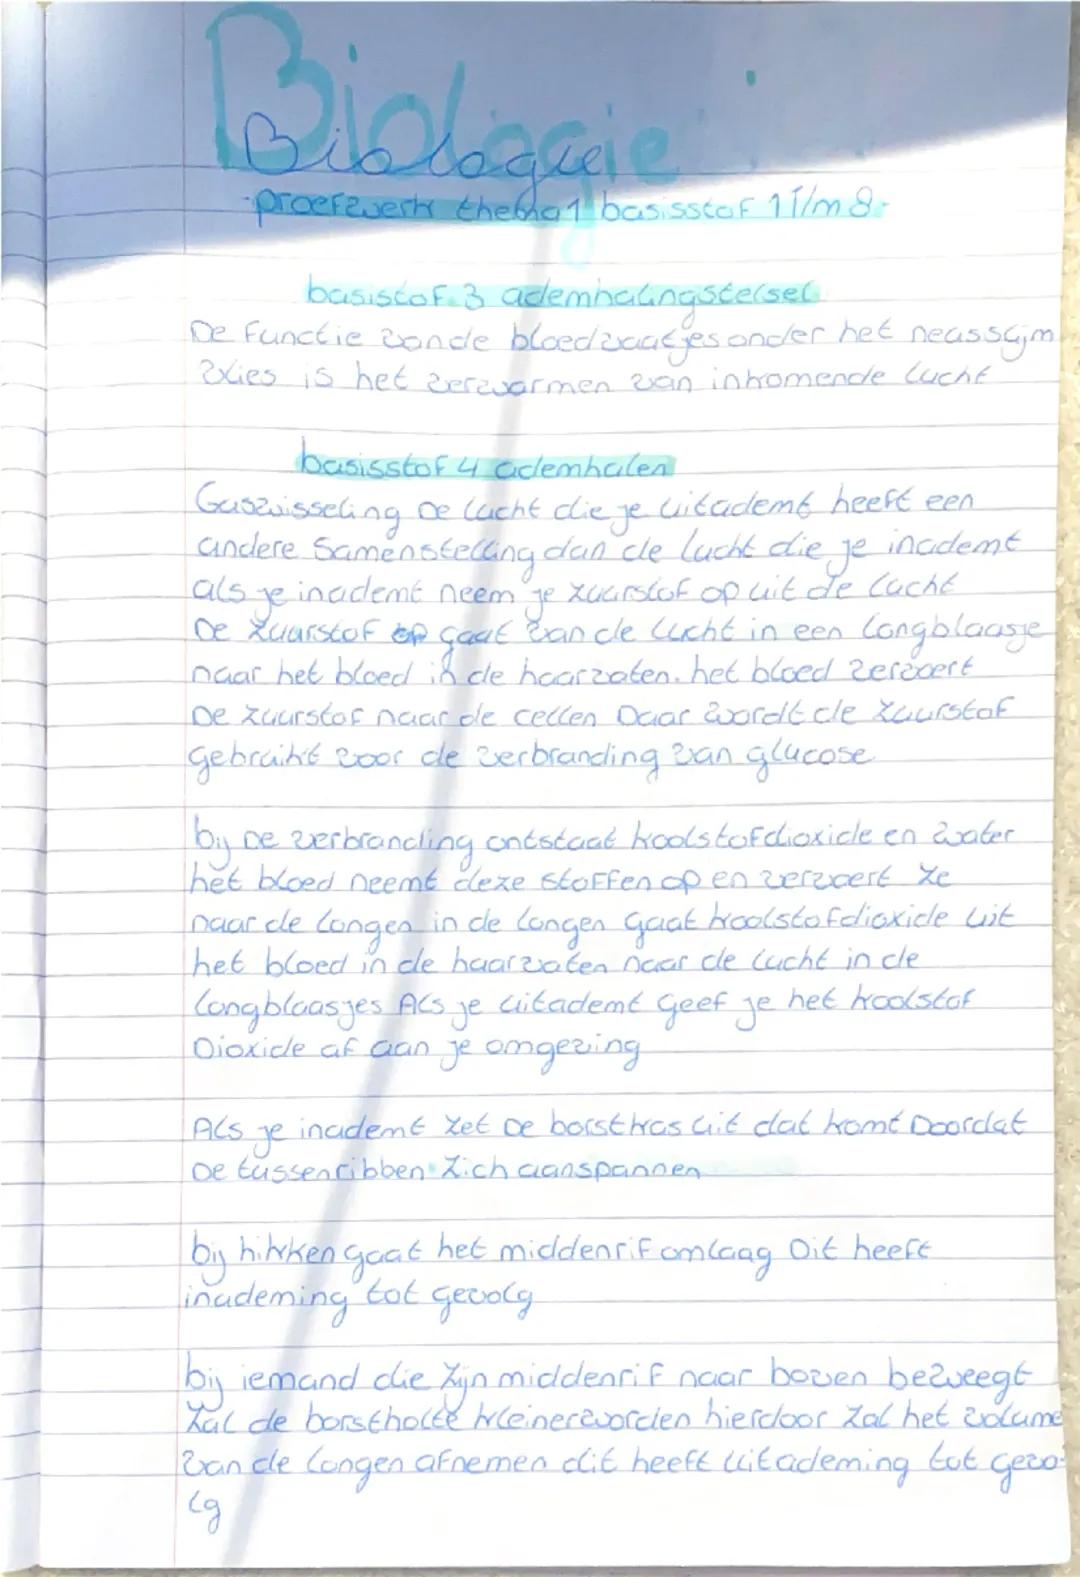 Biologie
Biologie
-proefwerk thema 1 basisstof 1 t/m 8-
basistof 3 ademhalingstelsel
De functie van de bloedvaatjes onder het neusslijm
vlies is het verwarmen van inkomende lucht
basisstof 4 ademhalen
Gaswisseling De lucht die je uitademt heeft een
andere samenstelling dan de lucht die je inademt
als je inademt neem je zuurstof op uit de lucht
De zuurstof gaat van de lucht in een longblaasje
naar het bloed in de haarvaten. het bloed vervoert
De zuurstof naar de cellen Daar wordt de zuurstof
Gebruikt voor de verbranding van glucose
bij De verbranding ontstaat koolstofdioxide en water
het bloed neemt deze stoffen op en vervoert ze
naar de longen in de longen gaat koolstofdioxide uit
het bloed in de haarvaten naar de lucht in de
longblaasjes Als je uitademt Geef je het koolstof
Dioxide af aan je omgeving
Als je inademt zet De borstkas uit dat komt Doordat
De tussenribben zich aanspannen
bij hikken gaat het middenrif omlaag Dit heeft
inademing tot gevolg
bij iemand die zijn middenrif naar boven beweegt
zal de borstholte kleiner worden hierdoor zal het volume
van de longen afnemen dit heeft uitademing tot gevo-
lg